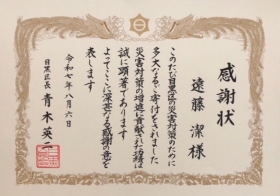 感謝状
遠藤 潔 様
このたび目黒区の災害対策のために
多大なるご寄付をされました
災害対策の増進に貢献された功績は
誠に顕著であります
よってここに深甚なる感謝の意を
表します
令和七年八月六日
目黒区長 青木英二